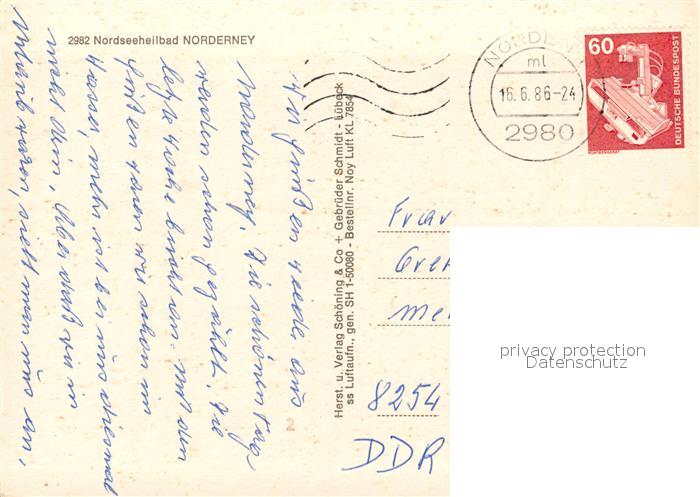 2982 Nordseeheilbad NORDERNEY
Wir grüßen Heide aus
Norderney. Die schönen Tage
werden schon gezählt. Die
letzte Woche bricht an. Mit den
Füßen waren wir schon im
Wasser mehr ist bei uns diesmal
nicht drin. Über daß wir in
Urlaub waren, sieht man uns an.
Herst. u. Verlag Schöning & Co + Gebrüder Schmidt - Lübeck
ss Luftaufn., gen. SH 1-50080 - Bestellnr. Noy Luft KL 7854
NORDEN
ml
16.6.86-24
2980
60
DEUTSCHE BUNDESPOST
Frau
8254
DDR
2
privacy protection
Datenschutz